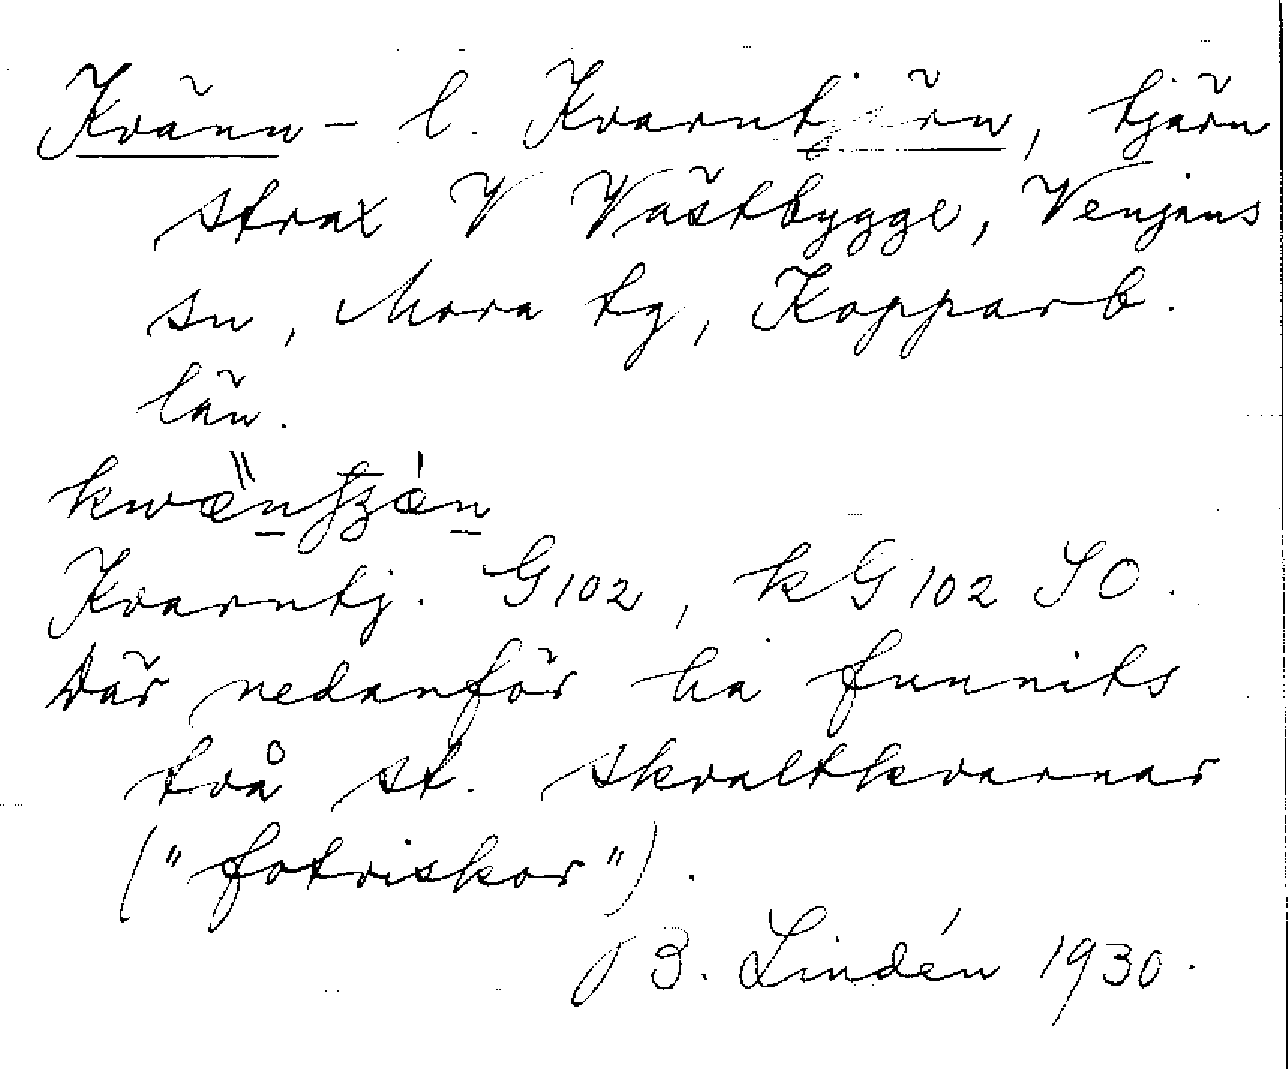 Kvänn- l. Kvarntjärn, tjärn
strax V Västbygge, Venjans
sn, Mora tg, Kopparb.
län.
Kvarntj. G102, kG102 SO.
Där nedanför ha funnits
två st. skvaltkvarnar
("fotriskor").
B. Lindén 1930.